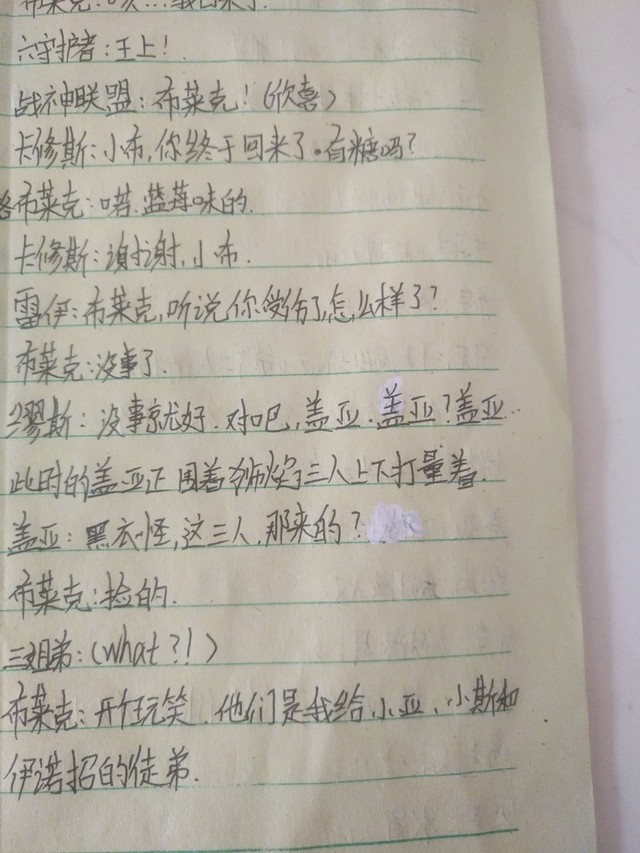 布莱克:咳…我回来了.
六守护者:王上!
战神联盟:布莱克!(欣喜)
卡修斯:小布,你终于回来了。有糖吗?
布莱克:喏.蓝莓味的.
卡修斯:谢谢,小布.
雷伊:布莱克,听说你受伤了,怎么样了?
布莱克:没事了.
缪斯:没事就好.对吧,盖亚.盖亚?盖亚..
此时的盖亚正围着狮焰三人上下打量着.
盖亚:黑衣怪,这三人,那来的?
布莱克:捡的.
三姐弟:(what?!)
布莱克:开个玩笑.他们是我给小亚、小斯和
伊诺招的徒弟.